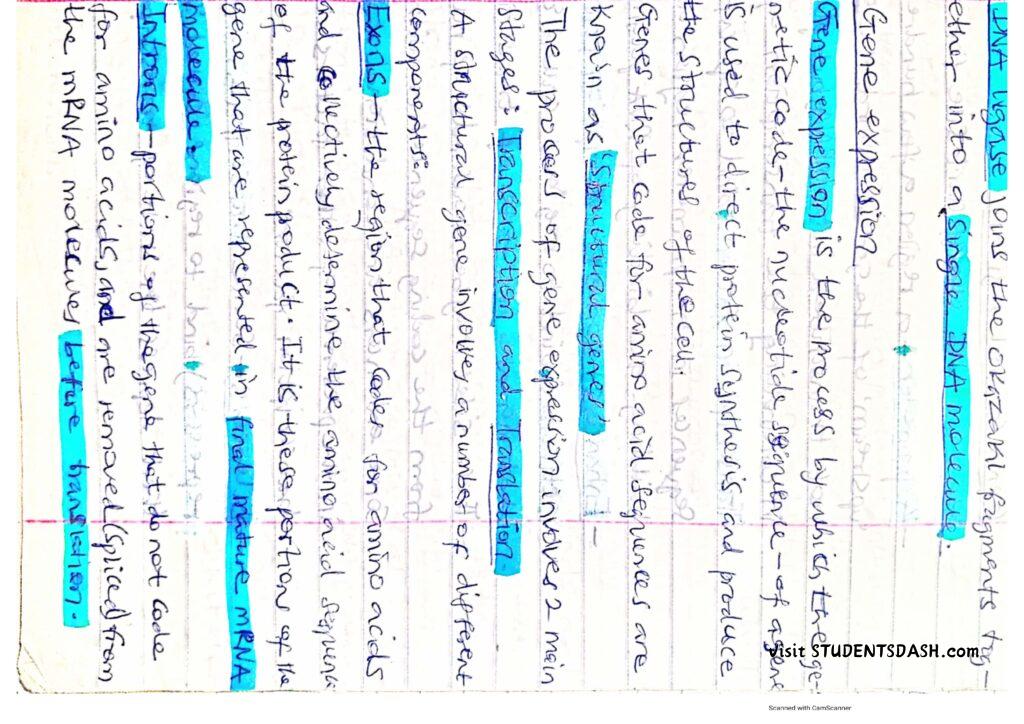 DNA ligase joins the okazaki fragments tog-
ether into a single DNA molecule.
Gene expression
Gene expression is the process by which the ge-
netic code - the nucleotide sequence - of a gene
is used to direct protein synthesis and produce
the structures of the cell.
Genes that code for amino acid sequences are
known as 'Structural genes'
The process of gene expression involves 2 main
stages: Transcription and Translation.
A structural gene involves a number of different
components:
Exons - the region that codes for amino acids
and collectively determine the amino acid sequence
of the protein product. It is these portions of the
gene that are represented in final mature mRNA
molecule.
Introns - portions of the gene that do not code
for amino acids, and are removed (spliced) from
the mRNA molecules before translation.
visit STUDENTSDASH.com
Scanned with CamScanner